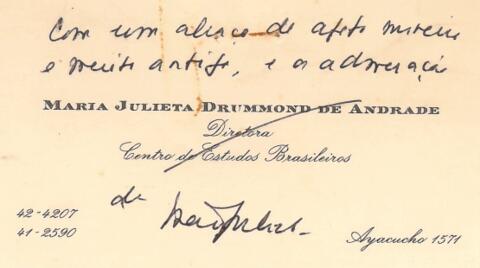 Com um abraço de afeto mineiro
e muito antigo, e a admiração
MARIA JULIETA DRUMMOND DE ANDRADE
Diretora
Centro de Estudos Brasileiros
da
Maria Julieta
42-4207
41-2590
Ayacucho 1571